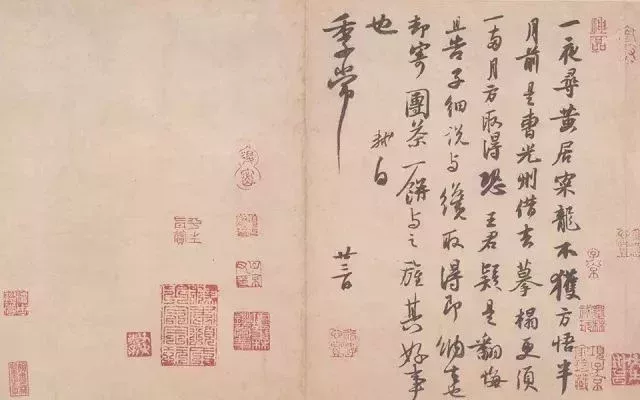 一夜尋黃居寀龍不獲方悟半
月前是曹光州借去摹搨更須
一兩月方取得恐王君疑是翻悔
且告子細說與纔取得即納去也
却寄團茶一餅與之旌其好事
也
軾白
季常
廿三日